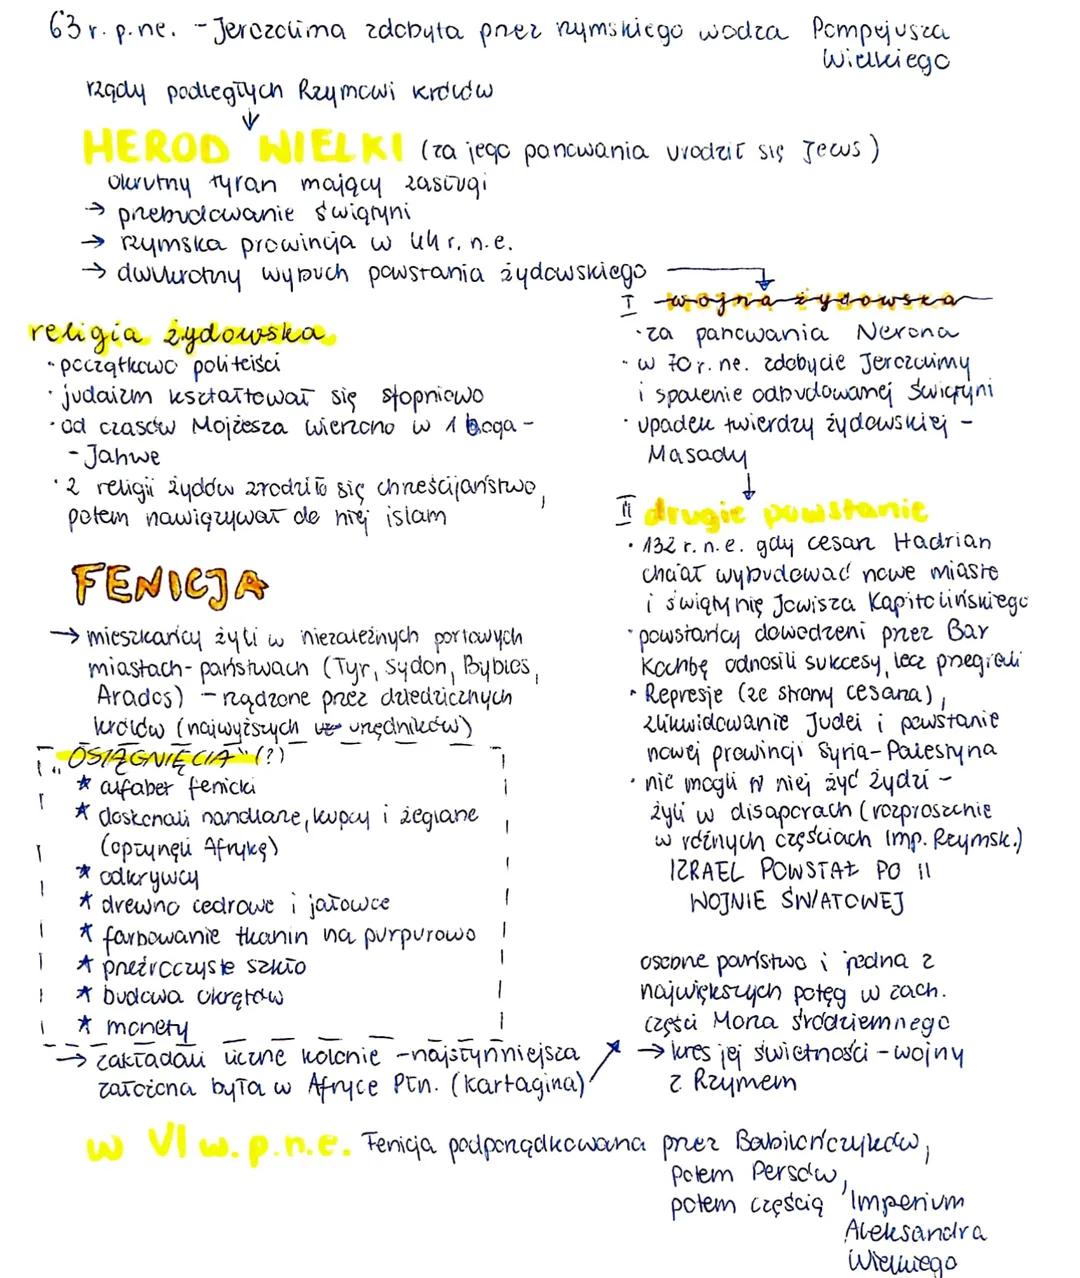 63 r. p. ne. - Jerozolima zdobyta przez rzymskiego wodza Pompejusza
Wielkiego
rządy podległych Rzymowi królów
↓
HEROD WIELKI (za jego panowania urodził się Jezus)
okrutny tyran mający zasługi
→ przebudowanie świątyni
→ rzymska prowincja w 44 r. n. e.
→ dwukrotny wybuch powstania żydowskiego
religia żydowska
· początkowo politeiści
· judaizm kształtował się stopniowo
· od czasów Mojżesza wierzono w 1 boga -
- Jahwe
· z religii żydów zrodziło się chrześcijaństwo,
potem nawiązywał do niej islam
I wojna żydowska
· za panowania Nerona
· w 70 r. ne. zdobycie Jerozolimy
i spalenie odbudowanej Świątyni
· upadek twierdzy żydowskiej -
Masady
↓
II drugie powstanie
· 132 r. n. e. gdy cesarz Hadrian
chciał wybudować nowe miasto
i świątynię Jowisza Kapitolińskiego
· powstańcy dowodzeni przez Bar
Kochbę odnosili sukcesy, lecz przegrali
· Represje (ze strony cesarza),
zlikwidowanie Judei i powstanie
nowej prowincji Syria-Palestyna
· nie mogli w niej żyć żydzi -
żyli w disaporach (rozproszenie
w różnych częściach Imp. Rzymsk.)
IZRAEL POWSTAŁ PO II
WOJNIE ŚWIATOWEJ
FENICJA
→ mieszkańcy żyli w niezależnych portowych
miastach-państwach (Tyr, Sydon, Byblos,
Arados) - rządzone przez dziedzicznych
królów (najwyższych urzędników)
„OSIĄGNIĘCIA" (?)
* alfabet fenicki
* doskonali handlarze, kupcy i żeglarze
(opłynęli Afrykę)
* odkrywcy
* drewno cedrowe i jałowce
* farbowanie tkanin na purpurowo
* przeźroczyste szkło
* budowa okrętów
* monety
→ zakładali liczne kolonie - najsłynniejsza
założona była w Afryce Płn. (Kartagina)
osobne państwo i jedna z
największych potęg w zach.
części Morza śródziemnego
→ kres jej świetności - wojny
z Rzymem
w VI w. p. n. e. Fenicja podporządkowana przez Babilończyków,
potem Persów,
potem częścią Imperium
Aleksandra
Wielkiego